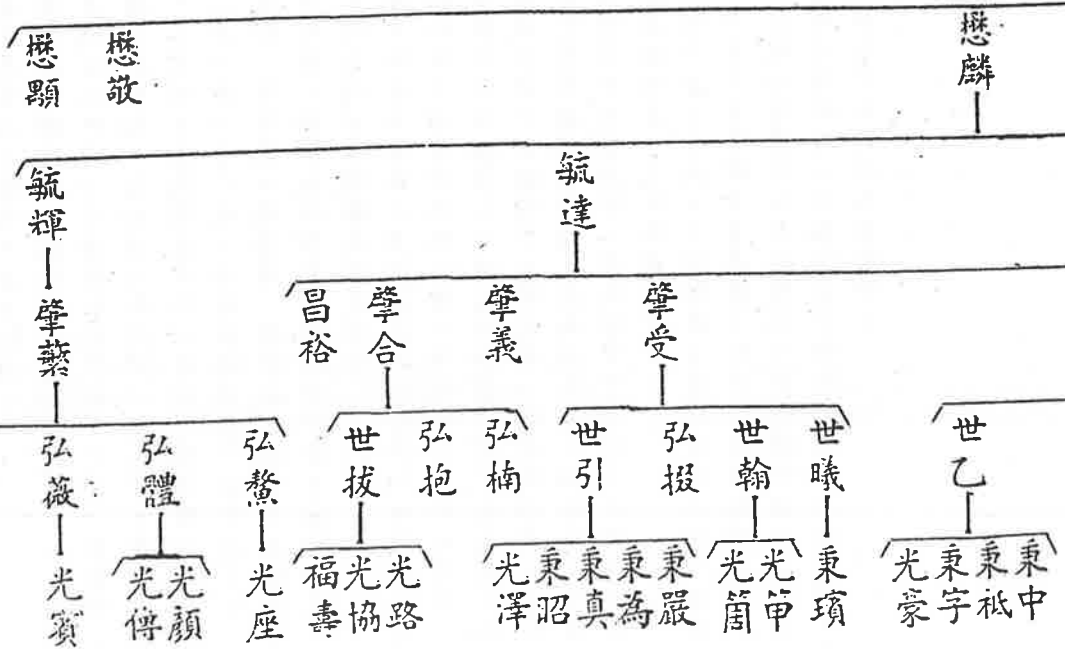 懋麟
懋敬
懋顯
毓達
毓輝
肇受
肇義
肇合
昌裕
肇蘩
世乙
世曦
世翰
弘掇
世引
弘楠
弘抱
世拔
弘鰲
弘體
弘薇
秉中
秉祗
秉字
光豪
秉璸
光笛
秉嚴
秉為
秉真
秉昭
光澤
光路
光協
福壽
光座
光顏
光傳
光賓